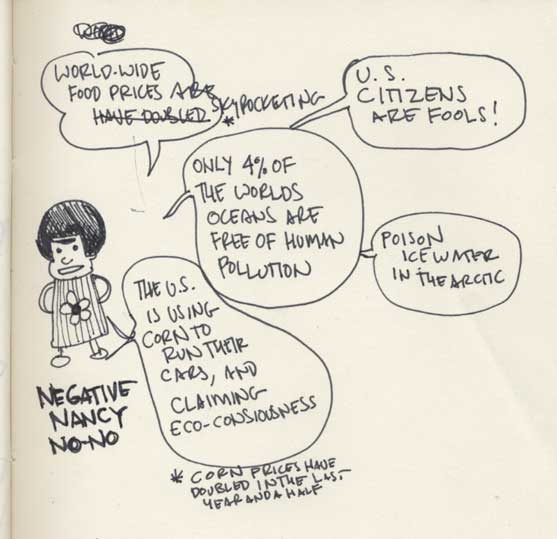 WORLD-WIDE
FOOD PRICES ARE
HAVE DOUBLED SKYROCKETING
*
U.S.
CITIZENS
ARE FOOLS!
ONLY 4% OF
THE WORLDS
OCEANS ARE
FREE OF HUMAN
POLLUTION
POISON
ICE WATER
IN THE ARCTIC
THE U.S.
IS USING
CORN TO
RUN THEIR
CARS, AND
CLAIMING
ECO-CONSIOUSNESS
NEGATIVE
NANCY
NO-NO
* CORN PRICES HAVE
DOUBLED IN THE LAST
YEAR AND A HALF